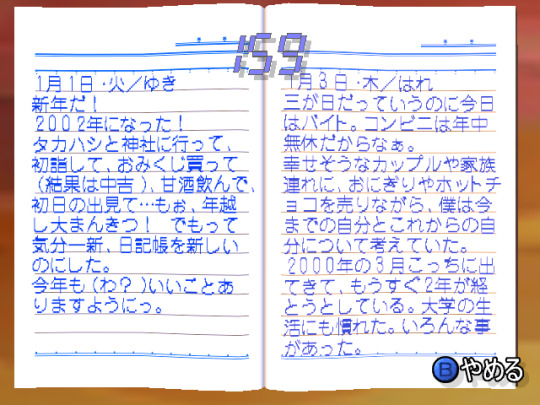 159
1月1日・火／ゆき
新年だ！
2002年になった！
タカハシと神社に行って、
初詣して、おみくじ買って
（結果は中吉）、甘酒飲んで、
初日の出見て…もぉ、年越
し大まんきつ！　でもって
気分一新、日記帳を新しい
のにした。
今年も（わ？）いいことあ
りますようにっ。
1月3日・木／はれ
三が日だっていうのに今日
はバイト。コンビニは年中
無休だからなぁ。
幸せそうなカップルや家族
連れに、おにぎりやホットチ
ョコを売りながら、僕は今
までの自分とこれからの自
分について考えていた。
2000年の3月こっちに出
てきて、もうすぐ2年が経
とうとしている。大学の生
活にも慣れた。いろんな事
があった。
Bやめる